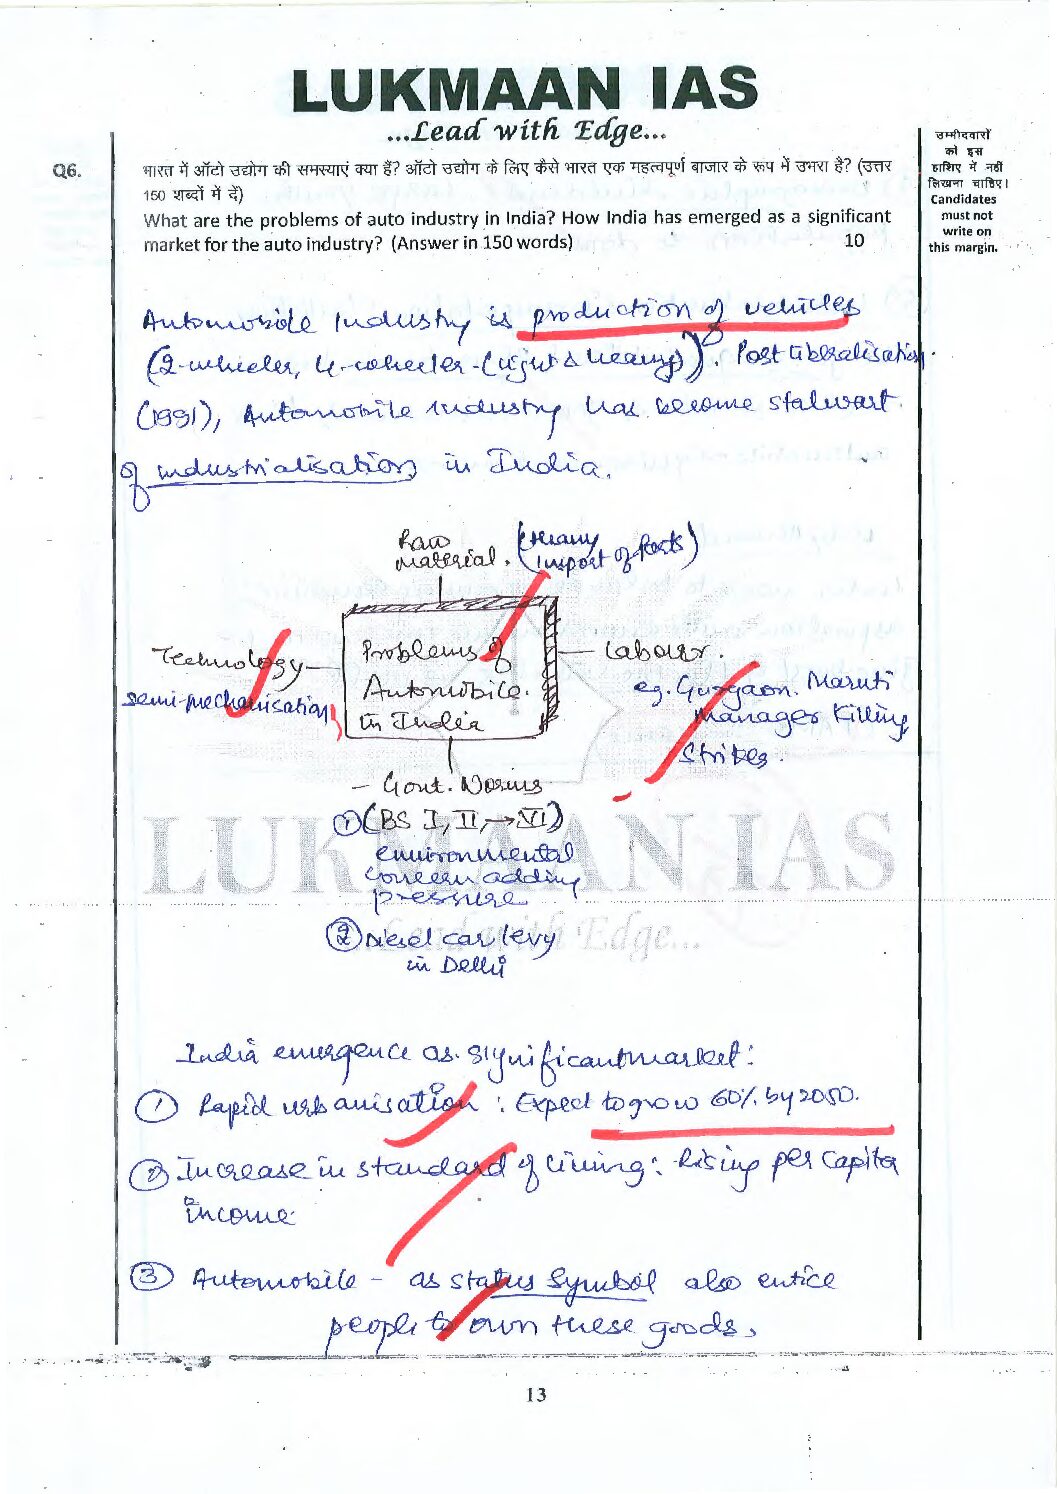 LUKMAAN IAS
...Lead with Edge...
Q6.
भारत में ऑटो उद्योग की समस्याएं क्या हैं? ऑटो उद्योग के लिए कैसे भारत एक महत्वपूर्ण बाजार के रूप में उभरा है? (उत्तर
150 शब्दों में दें)
What are the problems of auto industry in India? How India has emerged as a significant
market for the auto industry? (Answer in 150 words) 10
उम्मीदवारों
को इस
हाशिए में नहीं
लिखना चाहिए।
Candidates
must not
write on
this margin.
Automobile Industry is production of vehicles
(2-wheeler, 4-wheeler-(light & heavy)). Post liberalisation
(1991), Automobile industry has become stalwart
of industrialisation in India.
Raw
material. (Heavy
import of parts)
Technology
semi-mechanisation
Problems of
Automobile
in India
Labour.
eg. Gurgaon. Maruti
Manager Killing,
Strikes.
- Govt. Norms
① (BS I, II, → VI)
environmental
concern adding
pressure
② Diesel car levy
in Delhi
LUKMAAN IAS
Lead with Edge...
India emergence as significant market:
① Rapid urbanisation : Expect to grow 60% by 2050.
② Increase in standard of living: Rising per capita
income.
③ Automobile - as status symbol also entice
people to own these goods.
13